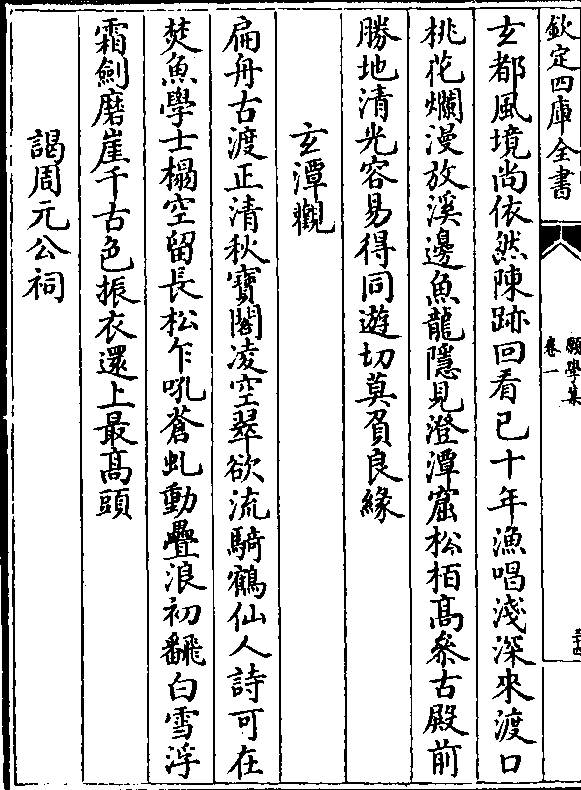 欽定四庫全書
願學集
卷一
三十四
玄都風境尚依然陳跡回看已十年漁唱淺深來渡口
桃花爛漫放溪邊魚龍隱見澄潭窟松栢髙叅古殿前
勝地清光容易得同遊切莫負良緣
玄潭觀
扁舟古渡正清秋寶閣凌空翠欲流騎鶴仙人詩可在
焚魚學士榻空留長松乍吼蒼虬動疊浪初飜白雪浮
霜劍磨崖千古色振衣還上最髙頭
謁周元公祠